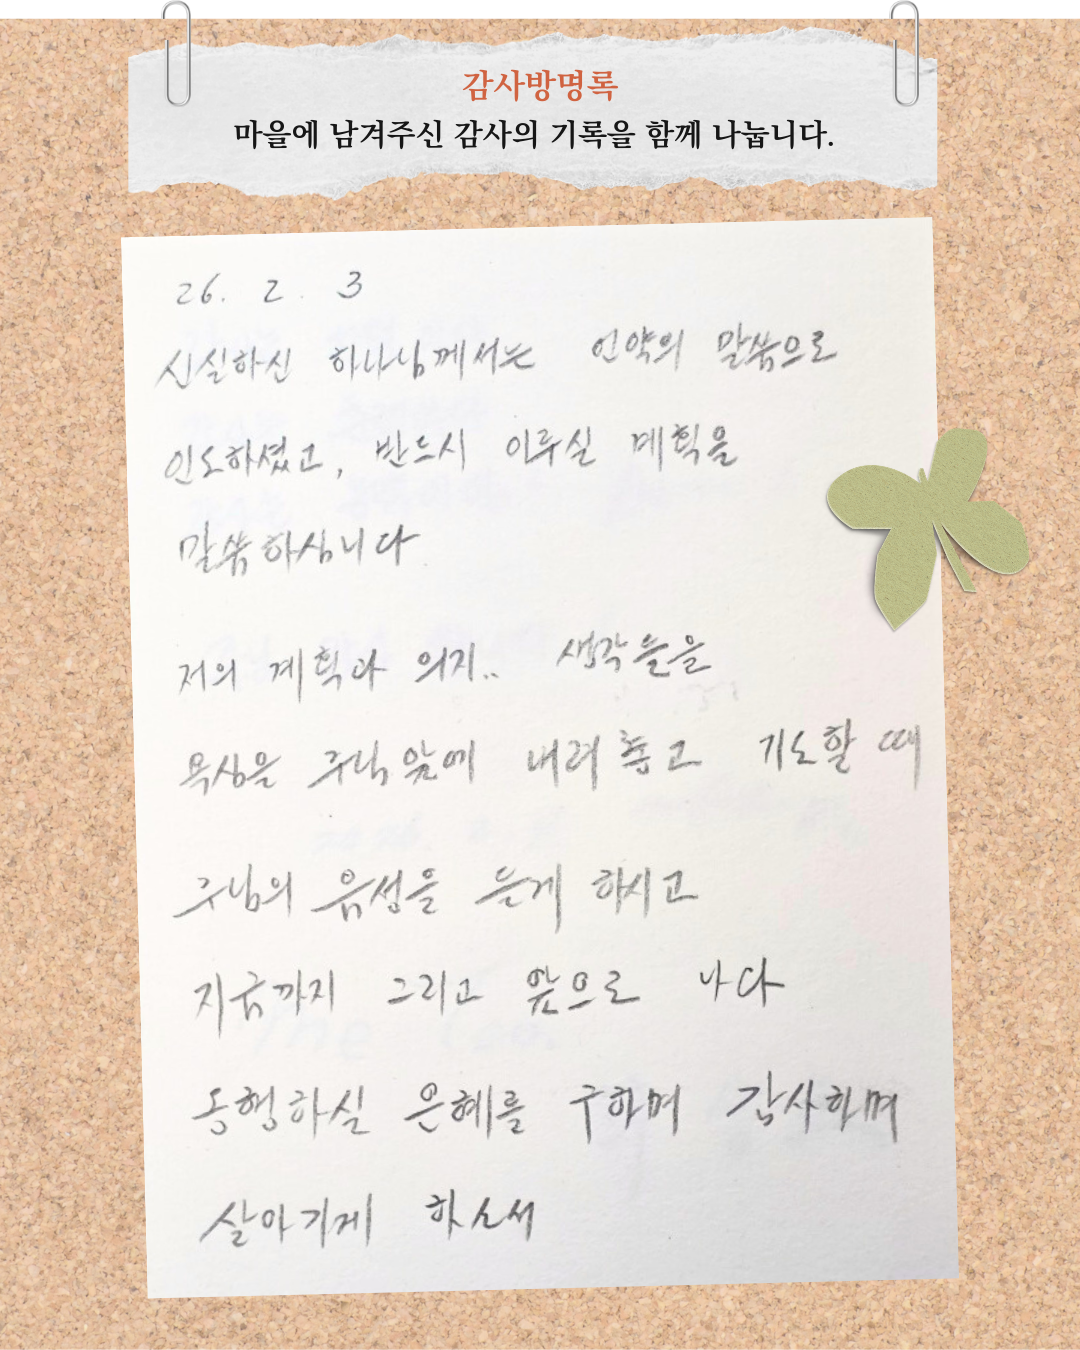 감사방명록
마을에 남겨주신 감사의 기록을 함께 나눕니다.
26. 2. 3
신실하신 하나님께서는 언약의 말씀으로
인도하셨고, 반드시 이루실 계획을
말씀하십니다
저의 계획과 의지.. 생각들을
욕심을 주님 앞에 내려놓고 기도할 때
주님의 음성을 듣게 하시고
지금까지 그리고 앞으로 나다
동행하실 은혜를 구하며 감사하며
살아가게 하소서